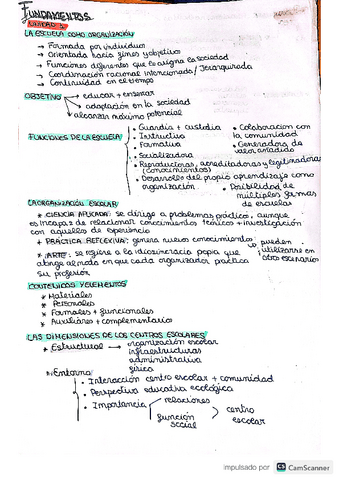 FUNDAMENTOS
UNIDAD 1
LA ESCUELA COMO ORGANIZACIÓN
→ Formada por individuos
→ Orientada hacia fines y objetivos
→ Funciones diferentes que le asigna la sociedad
→ Coordinación racional intencionada / Jerarquizada
→ Continuidad en el tiempo
OBJETIVO → educar + enseñar
→ adaptación en la sociedad
alcanzar máximo potencial
FUNCIONES DE LA ESCUELA
• Guardia + custodia
• Instructiva
• Formativa
• Socializadora
• Reproductoras, acreditadoras y legitimadoras (conocimientos)
• Desarrollo del propio aprendizaje como organización
• Colaboracion con la comunidad
• Generadora de valor añadido
• Posibilidad de múltiples formas de escuelas
LA ORGANIZACIÓN ESCOLAR
* CIENCIA APLICADA: se dirige a problemas prácticos, aunque
es incapaz de relacionar conocimientos teóricos + investigación
con aquellos de experiencia
+ PRÁCTICA REFLEXIVA: genera nuevos conocimientos
* ARTE: se refiere a la idiosincrasia propia que
abarge al modo en que cada organizador practica
su profesión
pueden
utilizarse en
otro escenarios
CONTENIDOS Y ELEMENTOS
* Materiales
* Personales
* Formales + funcionales
* Auxiliares + complementarios
LAS DIMENSIONES DE LOS CENTROS ESCOLARES
* Estructural → organización escolar
infraestructuras
administrativa
física
* Entorno:
• Interacción centro escolar + comunidad
• Perspectiva educativa ecológica
• Importancia relaciones
función social
centro escolar
impulsado por CS CamScanner